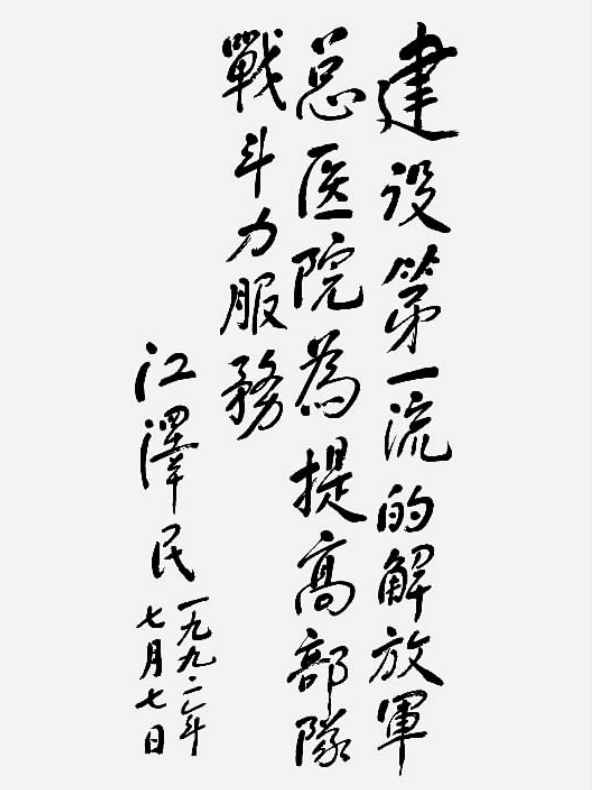 建设第一流的解放軍
总医院為提高部隊
戰斗力服務
江澤民
一九九二年
七月七日